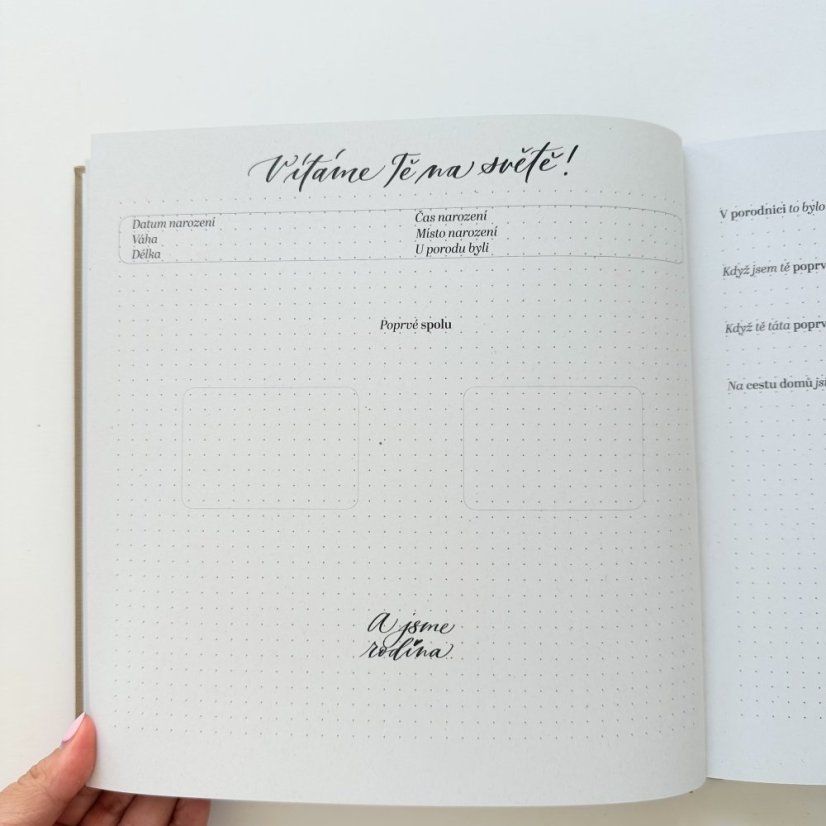 Vítáme Tě na světě!
Datum narození
Váha
Délka
Čas narození
Místo narození
U porodu byli
Poprvé spolu
A jsme
rodina
V porodnici to bylo
Když jsem tě
Když tě táta
Na cestu domů